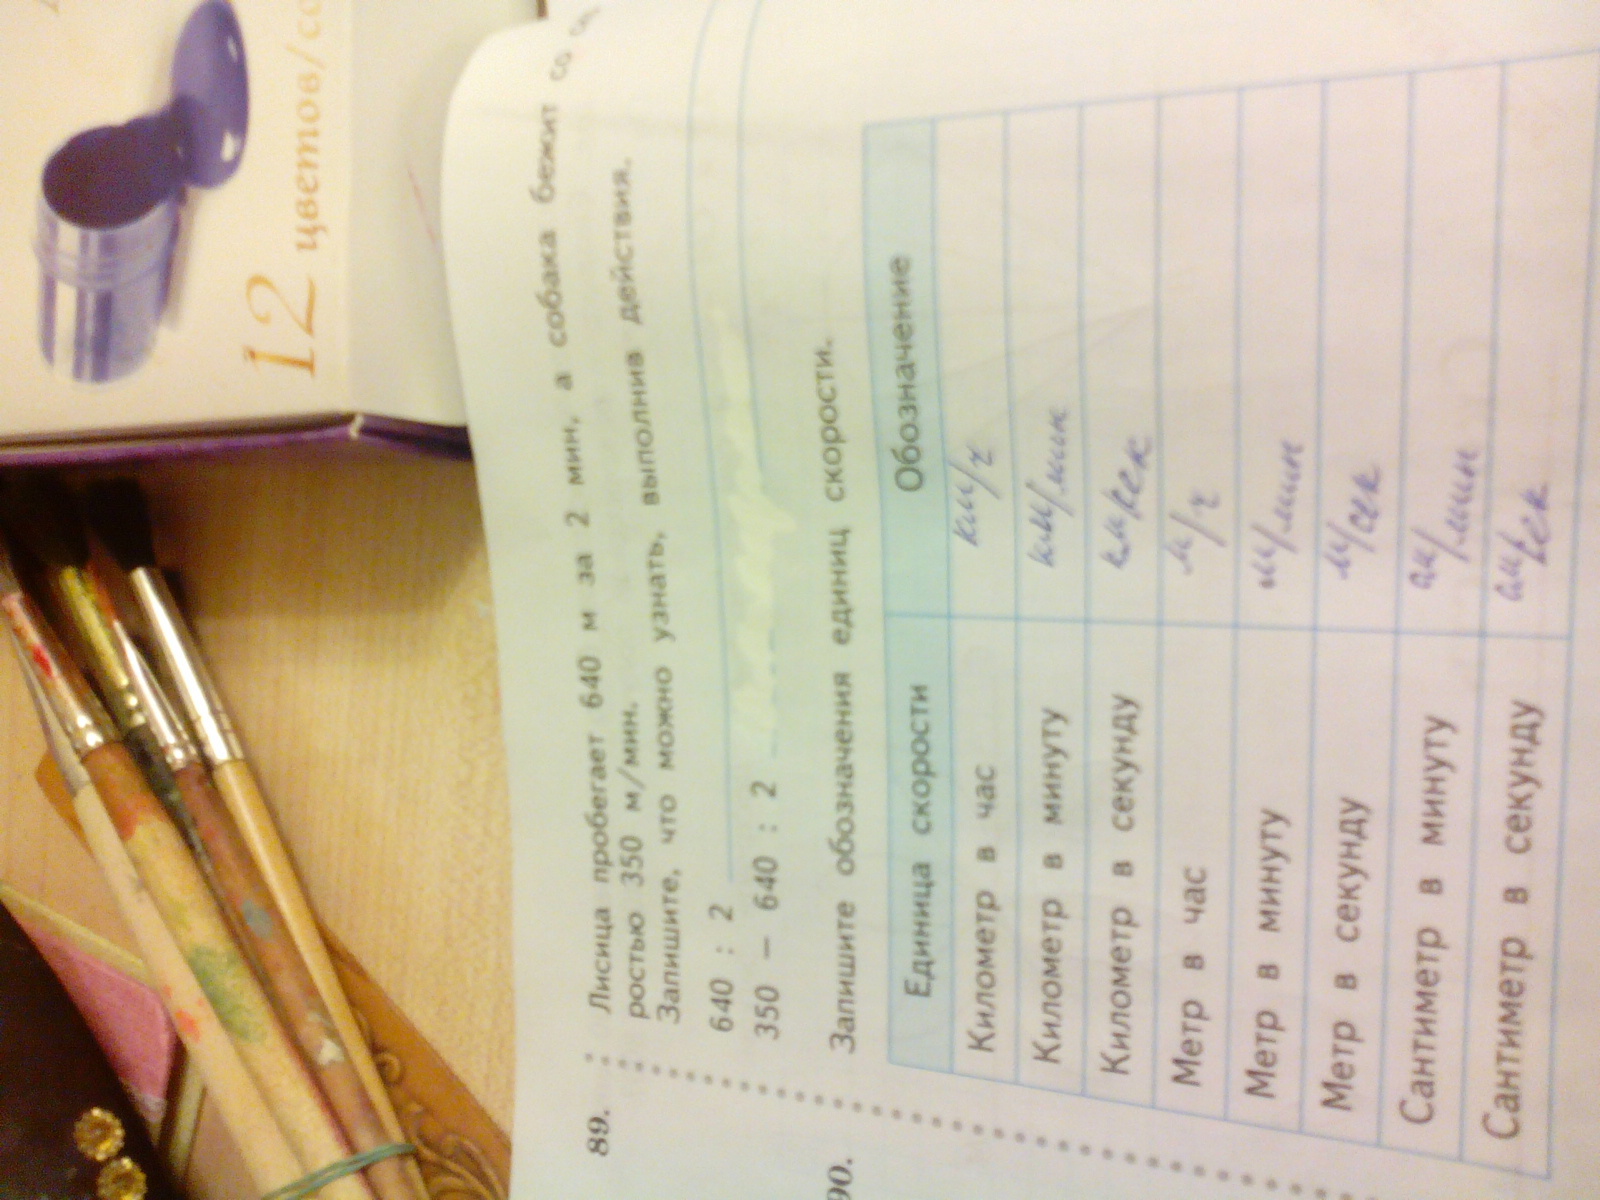 12 цветов/co
89. Лисица пробегает 640 м за 2 мин, а собака бежит со ско
ростью 350 м/мин.
Запишите, что можно узнать, выполнив действия.
640 : 2
350 – 640 : 2
90. Запишите обозначения единиц скорости.
Единица скорости Обозначение
Километр в час км/ч
Километр в минуту км/мин
Километр в секунду км/сек
Метр в час м/ч
Метр в минуту м/мин
Метр в секунду м/сек
Сантиметр в минуту см/мин
Сантиметр в секунду см/сек